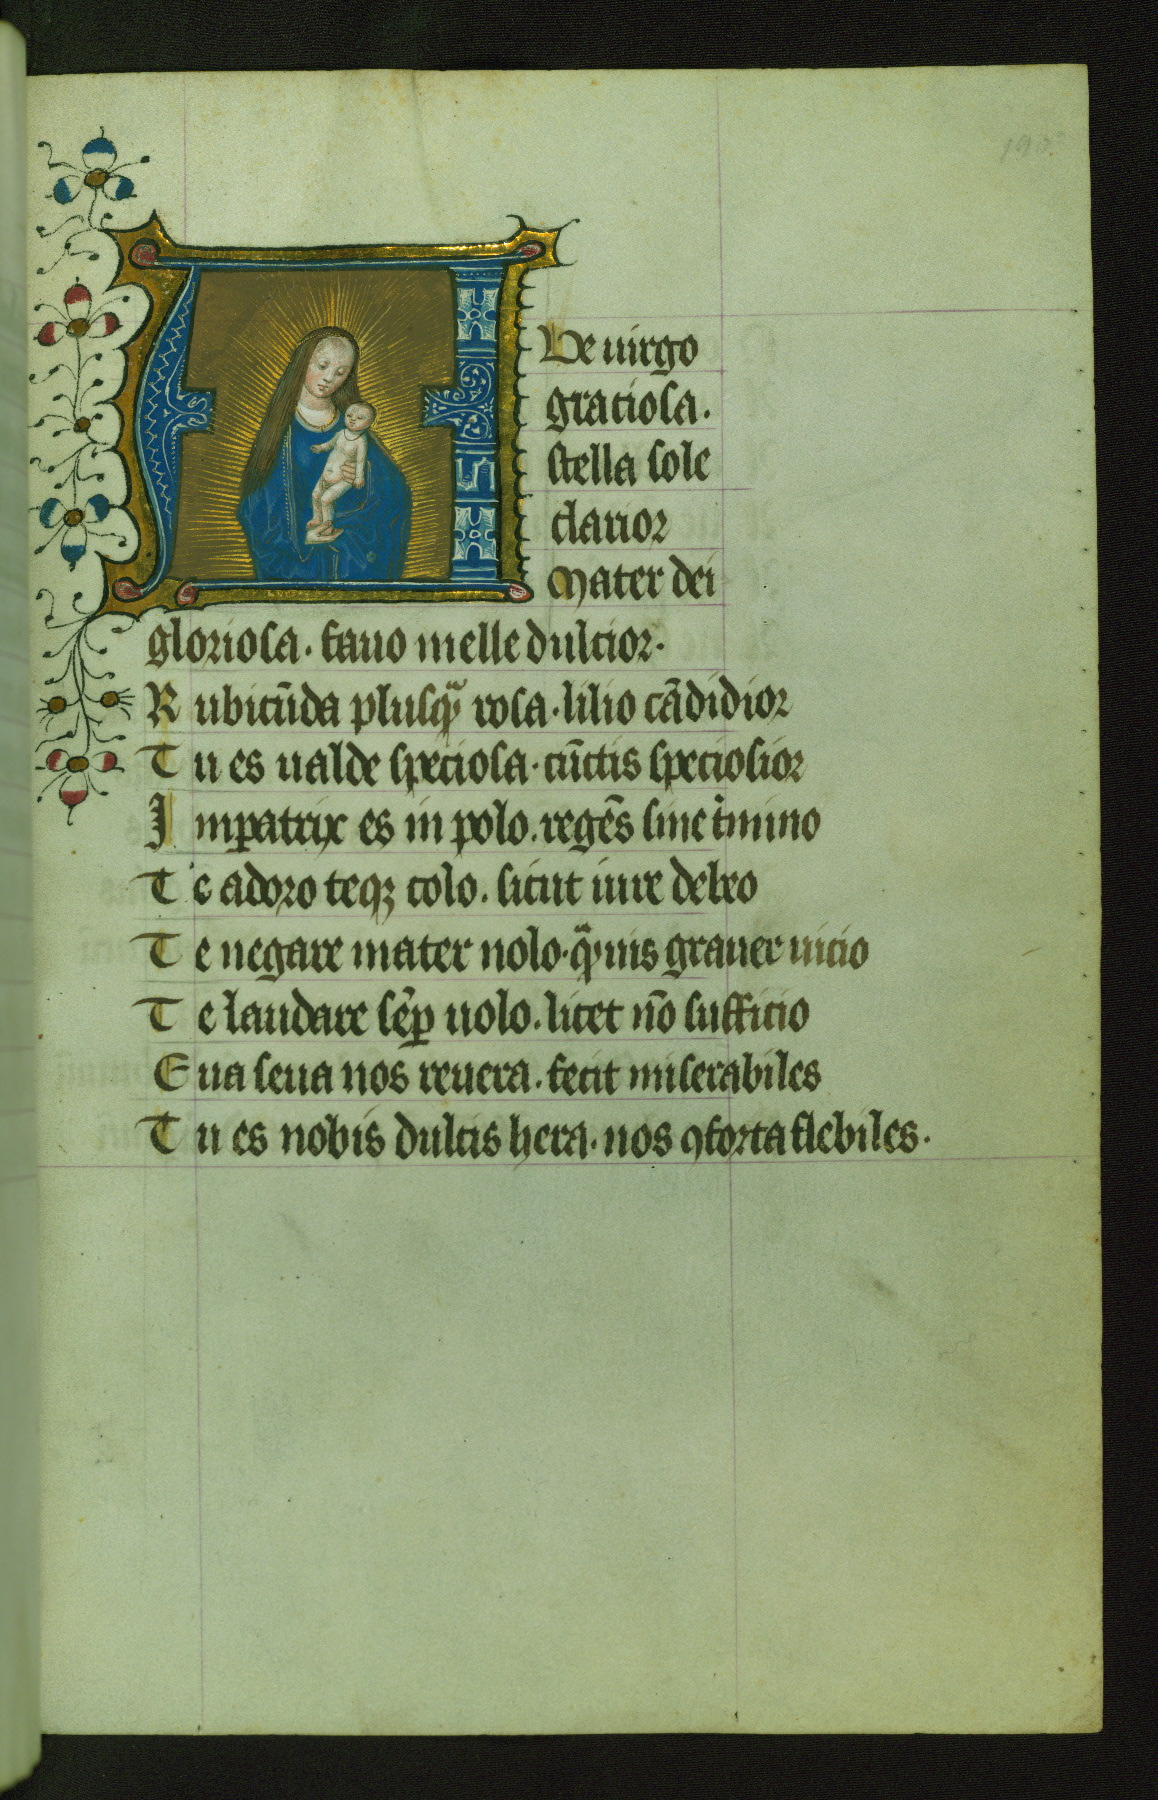 AVe uirgo
graciosa.
stella sole
clarior
Mater dei
gloriosa. fauo melle dulcior.
Rubicūda plusqᷓ rosa. lilio cādidior
Tu es ualde speciosa. cūctis speciosior
Impatrix es in polo. regēs sine tͥmino
Te adoro teqꝫ colo. sicut iure debeo
Te negare mater nolo. qᷓuis grauer uicio
Te laudare sēꝑ uolo. licet nō sufficio
Eua seua nos reuera. fecit miserabiles
Tu es nobis dulcis hera. nos ꝯforta flebiles.